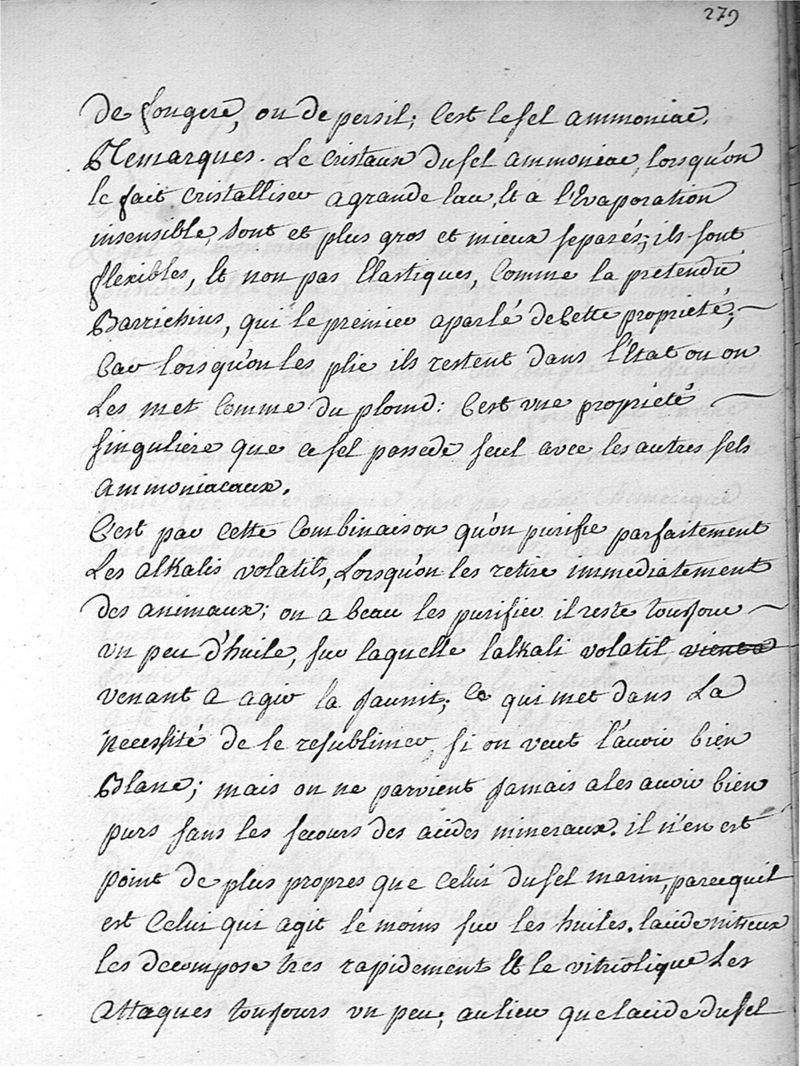 279
de fougere, ou de persil; C'est le sel ammoniac.
Remarques. Le cristaux du sel ammoniac, lorsqu'on
le fait cristalliser a grande eau, et a l'Evaporation
insensible, sont et plus gros et mieux separés; ils sont
flexibles, et non pas Elastiques, Comme la pretendu
Barrichius, qui le premier a parlé de Cette proprieté;
Car lorsqu'on les plie ils restent dans l'Etat ou on
Les met Comme du plomd: C'est une propriété
singuliere que ce sel possede seul avec les autres sels
ammoniacaux.
C'est par cette Combinaison qu'on purifie parfaitement
Les alkalis volatils, Lorsqu'on les retire immediatement
des animaux; on a beau les purifier il reste toujour
un peu d'huile, sur laquelle l'alkali volatil
venant a agir la jaunit; Ce qui met dans La
Necessité de le resublimer, si on veut l'avoir bien
Blanc; mais on ne parvient Jamais a les avoir bien
purs sans les secours des acides mineraux. il n'en est
point de plus propres que Celui du sel marin, parcequil
est Celui qui agit le moins sur les huiles. lacide nitreux
les decompose tres rapidement Et le vitriolique Les
Attaques toujours un peu; au lieu que lacide du sel